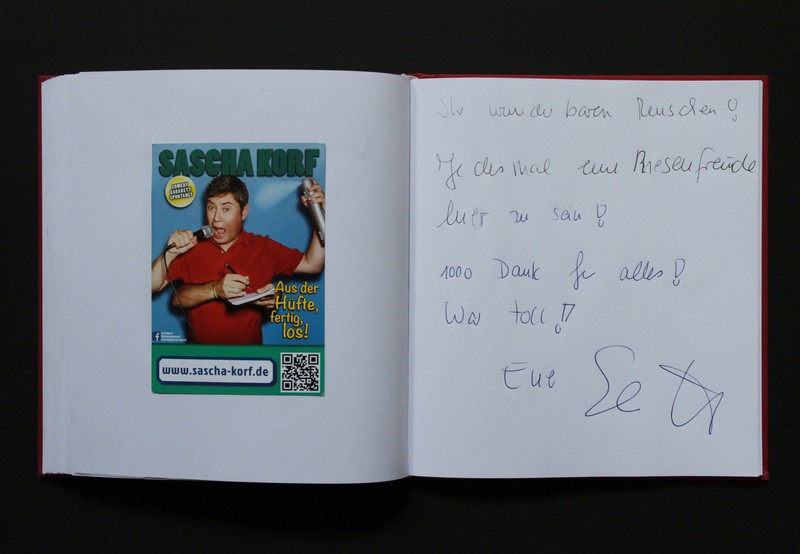 SASCHA KORF
COMEDY
KABARETT
SPONTANES
Aus der
Hüfte,
fertig,
los!
www.sascha-korf.de
Ihr wunderbaren Menschen!
Jedesmal eine Riesenfreude
hier zu sein!
1000 Dank für alles!
War toll!
Eue